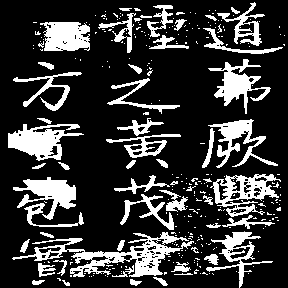 道茀厥豐草
種之黃茂實
方實苞實